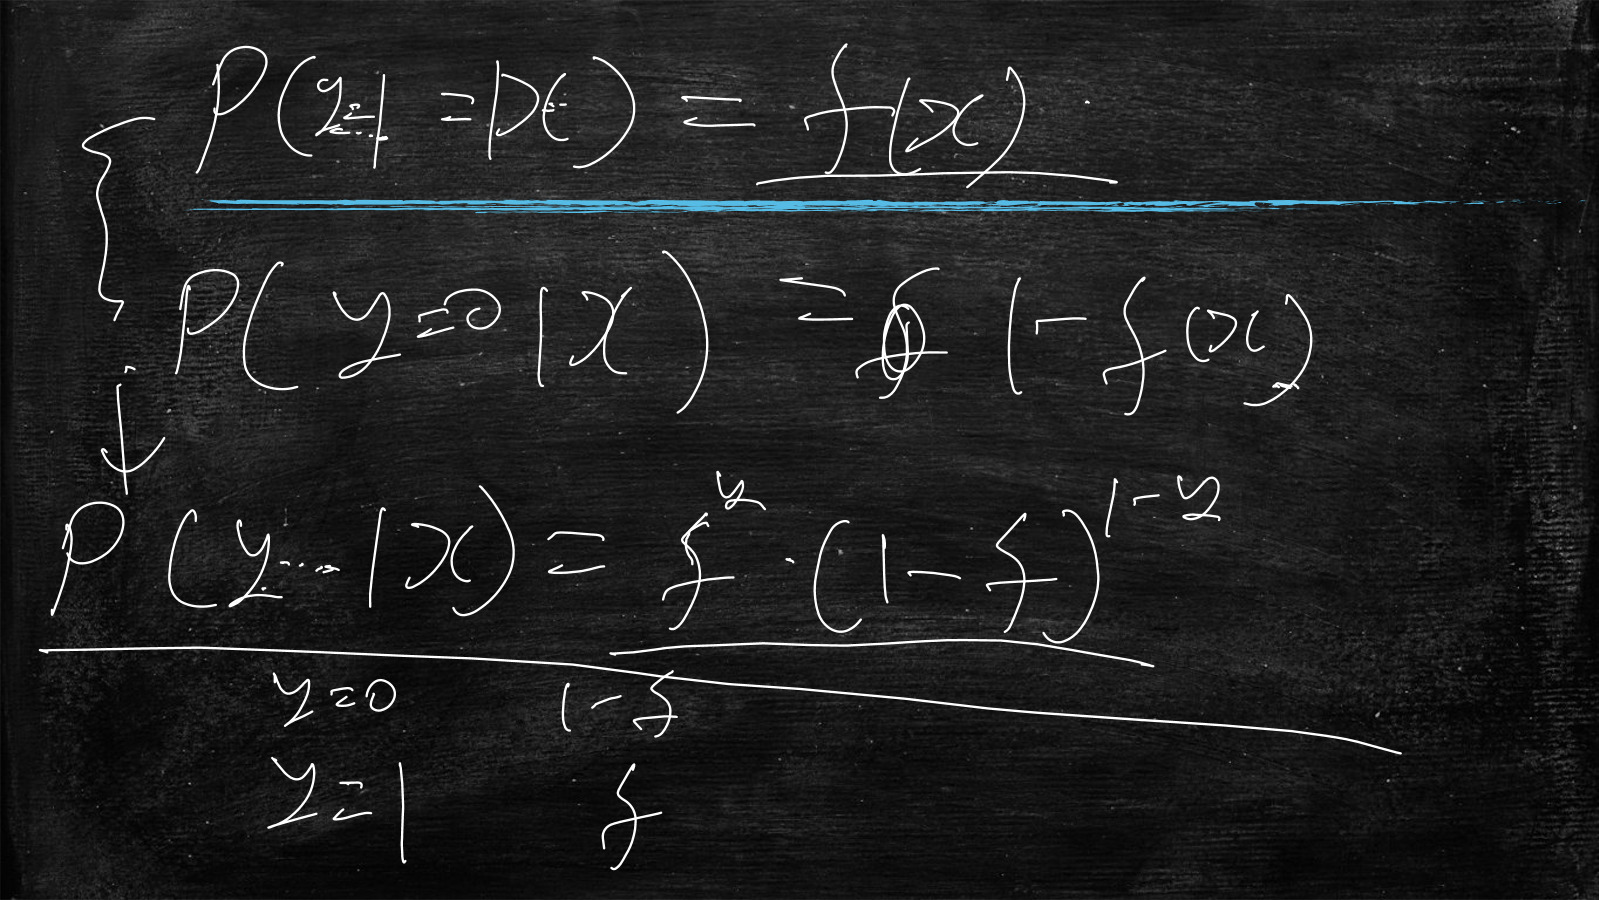 P(y=1 = |x) = f(x).
P(y=0|x) = 1-f(x)
P(y...|x) = f^y · (1-f)^{1-y}
y=0 1-f
y=1 f